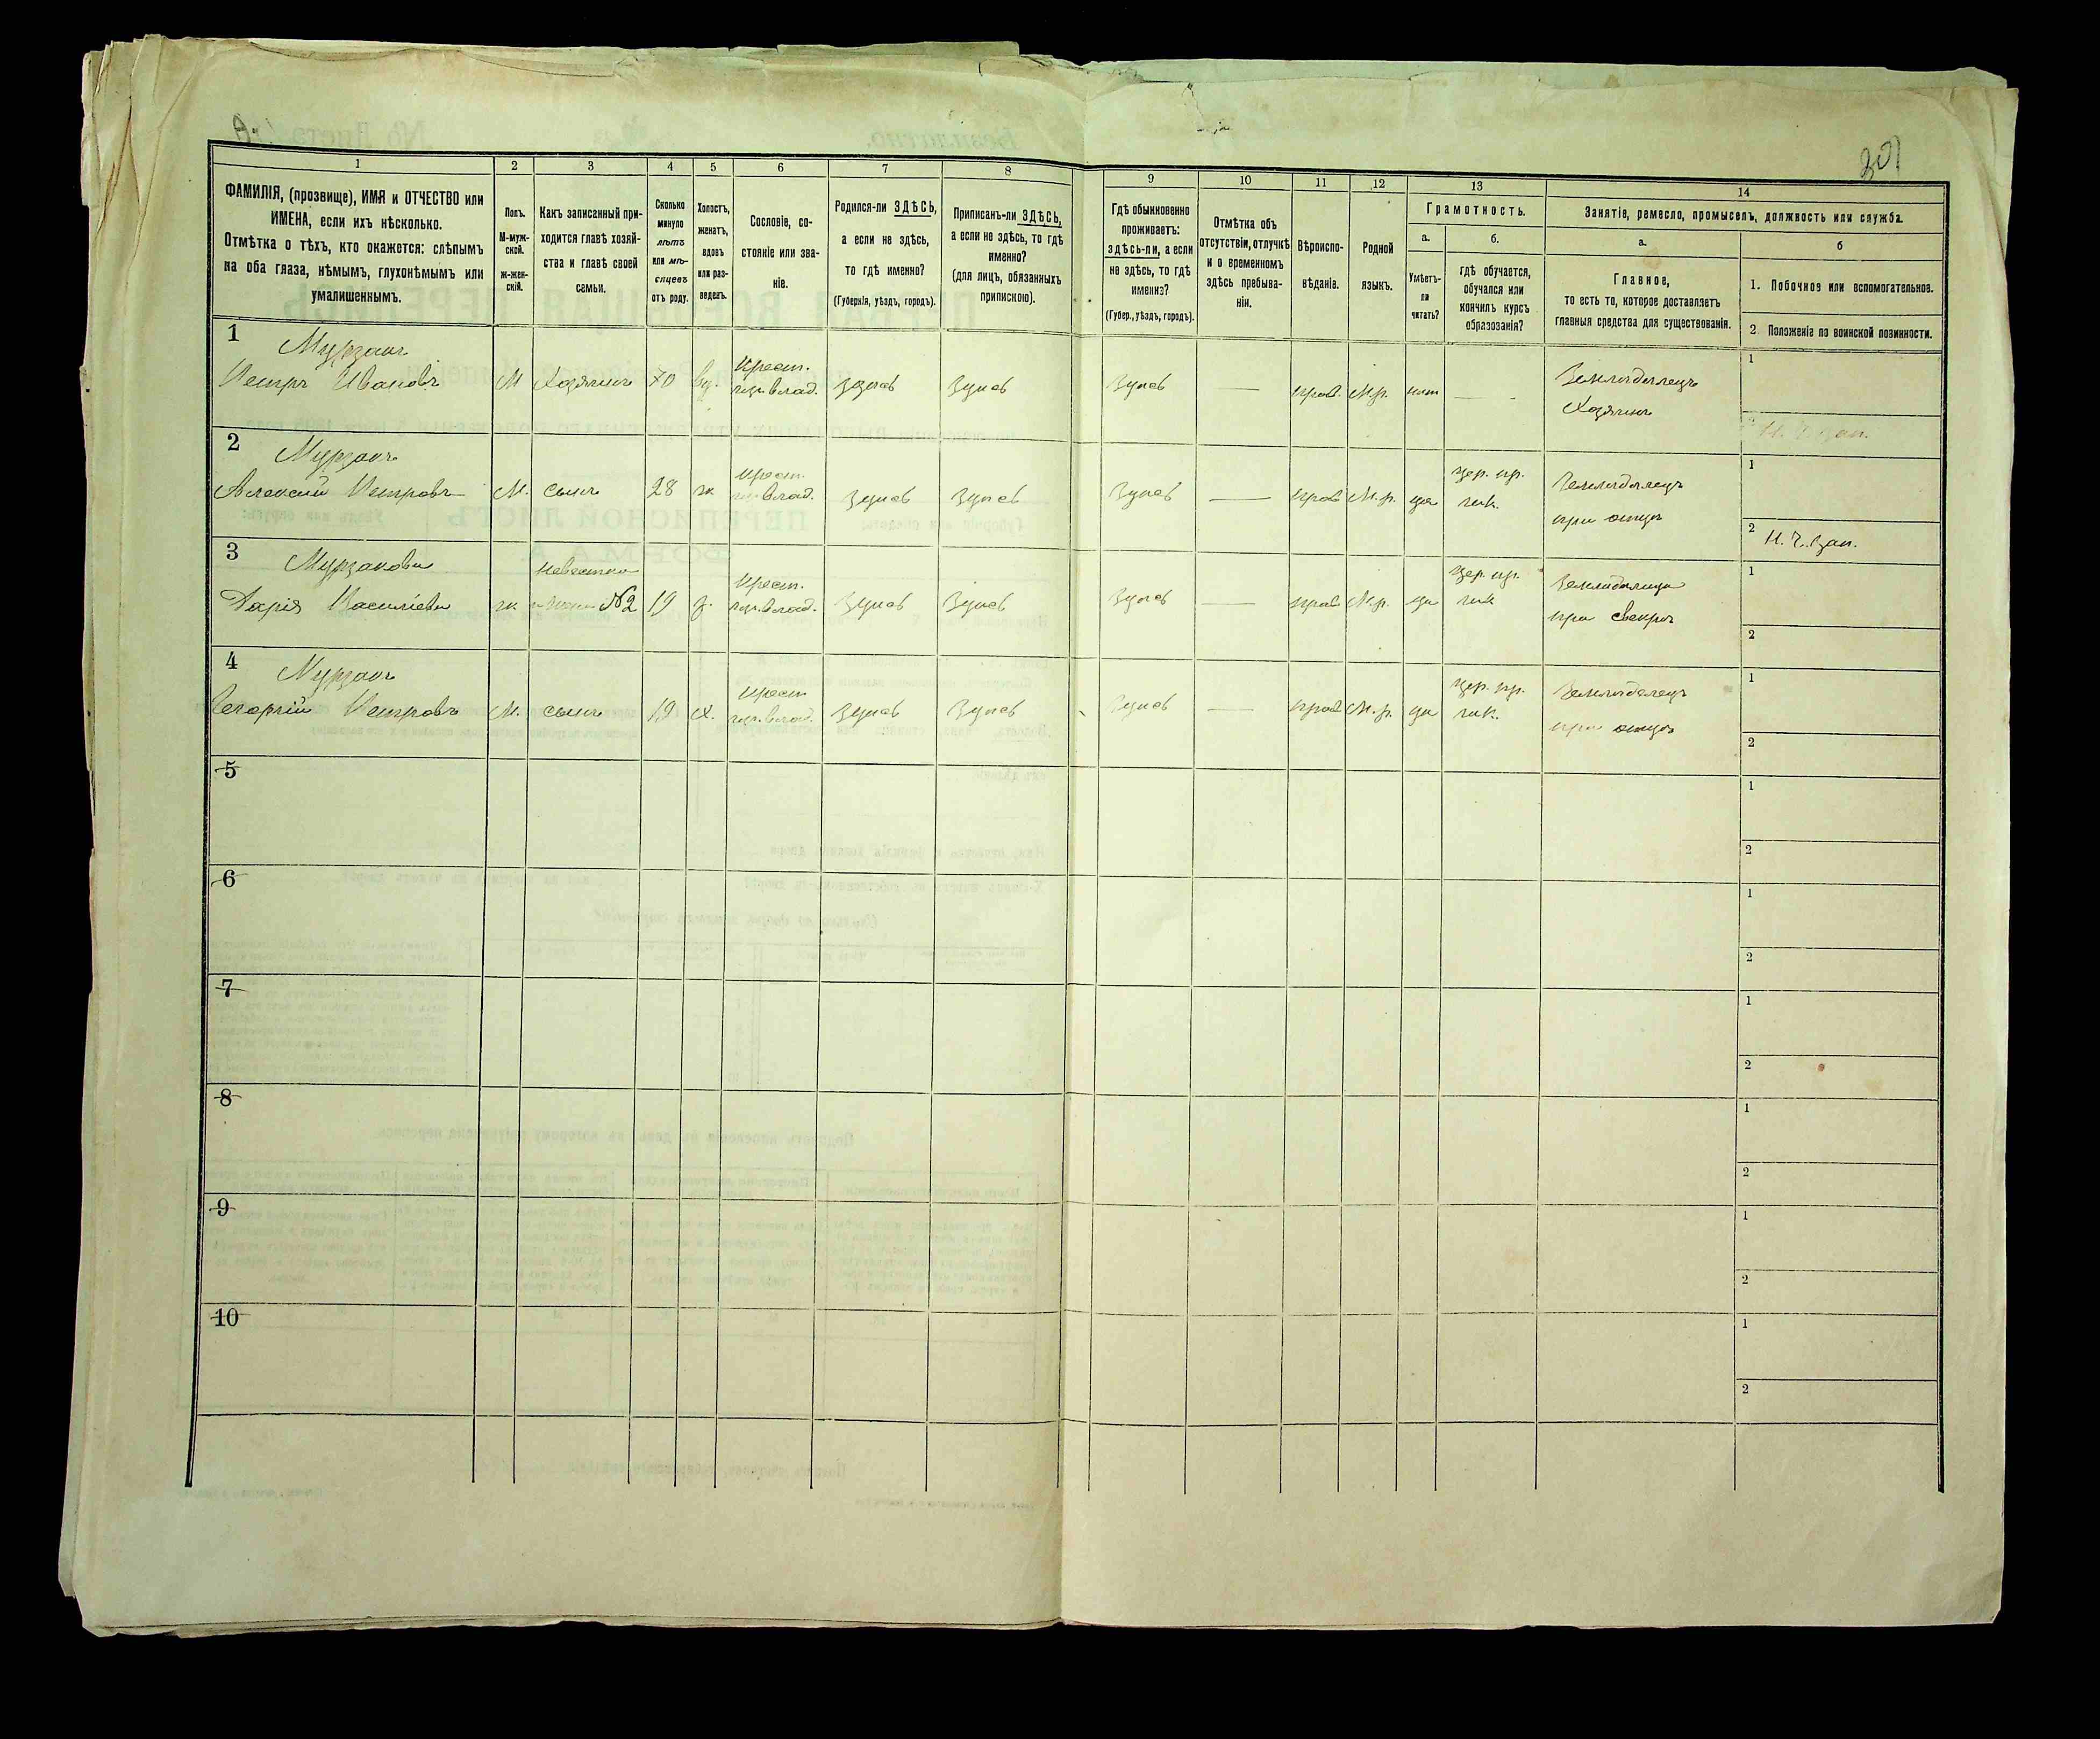 301
1 2 3 4 5 6 7 8 9 10 11 12 13 14
ФАМИЛІЯ, (прозвище), ИМЯ и ОТЧЕСТВО или
ИМЕНА, если ихъ нѣсколько.
Отмѣтка о тѣхъ, кто окажется: слѣпымъ
на оба глаза, нѣмымъ, глухонѣмымъ или
умалишеннымъ.
Полъ.
М-муж-
ской.
ж-жен-
скій.
Какъ записанный при-
ходится главѣ хозяй-
ства и главѣ своей
семьи.
Сколько
минуло
лѣтъ
или мѣ-
сяцевъ
отъ роду.
Холостъ,
женатъ,
вдовъ
или раз-
веденъ.
Сословіе, со-
стояніе или зва-
ніе.
Родился-ли ЗДѢСЬ,
а если не здѣсь,
то гдѣ именно?
(Губернія, уѣздъ, городъ).
Приписанъ-ли ЗДѢСЬ,
а если не здѣсь, то гдѣ
именно?
(для лицъ, обязанныхъ
припискою).
Гдѣ обыкновенно
проживаетъ:
здѣсь-ли, а если
не здѣсь, то гдѣ
именно?
(Губер., уѣздъ, городъ).
Отмѣтка объ
отсутствіи, отлучкѣ
и о временномъ
здѣсь пребыва-
ніи.
Вѣроиспо-
вѣданіе.
Родной
языкъ.
Грамотность.
а.
Умѣетъ-
ли
читать?
б.
гдѣ обучается,
обучался или
кончилъ курсъ
образованія?
Занятіе, ремесло, промыселъ, должность или служба.
а.
Главное,
то есть то, которое доставляетъ
главныя средства для существованія.
б
1. Побочное или вспомогательное.
2. Положеніе по воинской повинности.
1 Мурзакъ
Петръ Ивановъ М Хозяинъ 70 вд. Крест. влад. Здѣсь Здѣсь Здѣсь — прав. М.р. нѣтъ — Земледѣлецъ
Хозяинъ
1
2 Мурзакъ
Алексѣй Петровъ М. сынъ 28 ж Крест. влад. Здѣсь Здѣсь Здѣсь — прав М.р. да цер. пр. шк. Земледѣлецъ
при отцѣ
1
2 Н. Ч. Зап.
3 Мурзакова
Дарія Василіева ж невестка жена №2 19 з. Крест. влад. Здѣсь Здѣсь Здѣсь — прав М.р. да цер. пр. шк Земледѣлица
при свекрѣ
1
2
4 Мурзакъ
Георгій Петровъ М. сынъ 19 х. Крест влад. Здѣсь Здѣсь Здѣсь прав М.р. да цер. пр. шк. Земледѣлецъ
при отцѣ
1
2
5
1
2
6
1
2
7
1
2
8
1
2
9
1
2
10
1
2